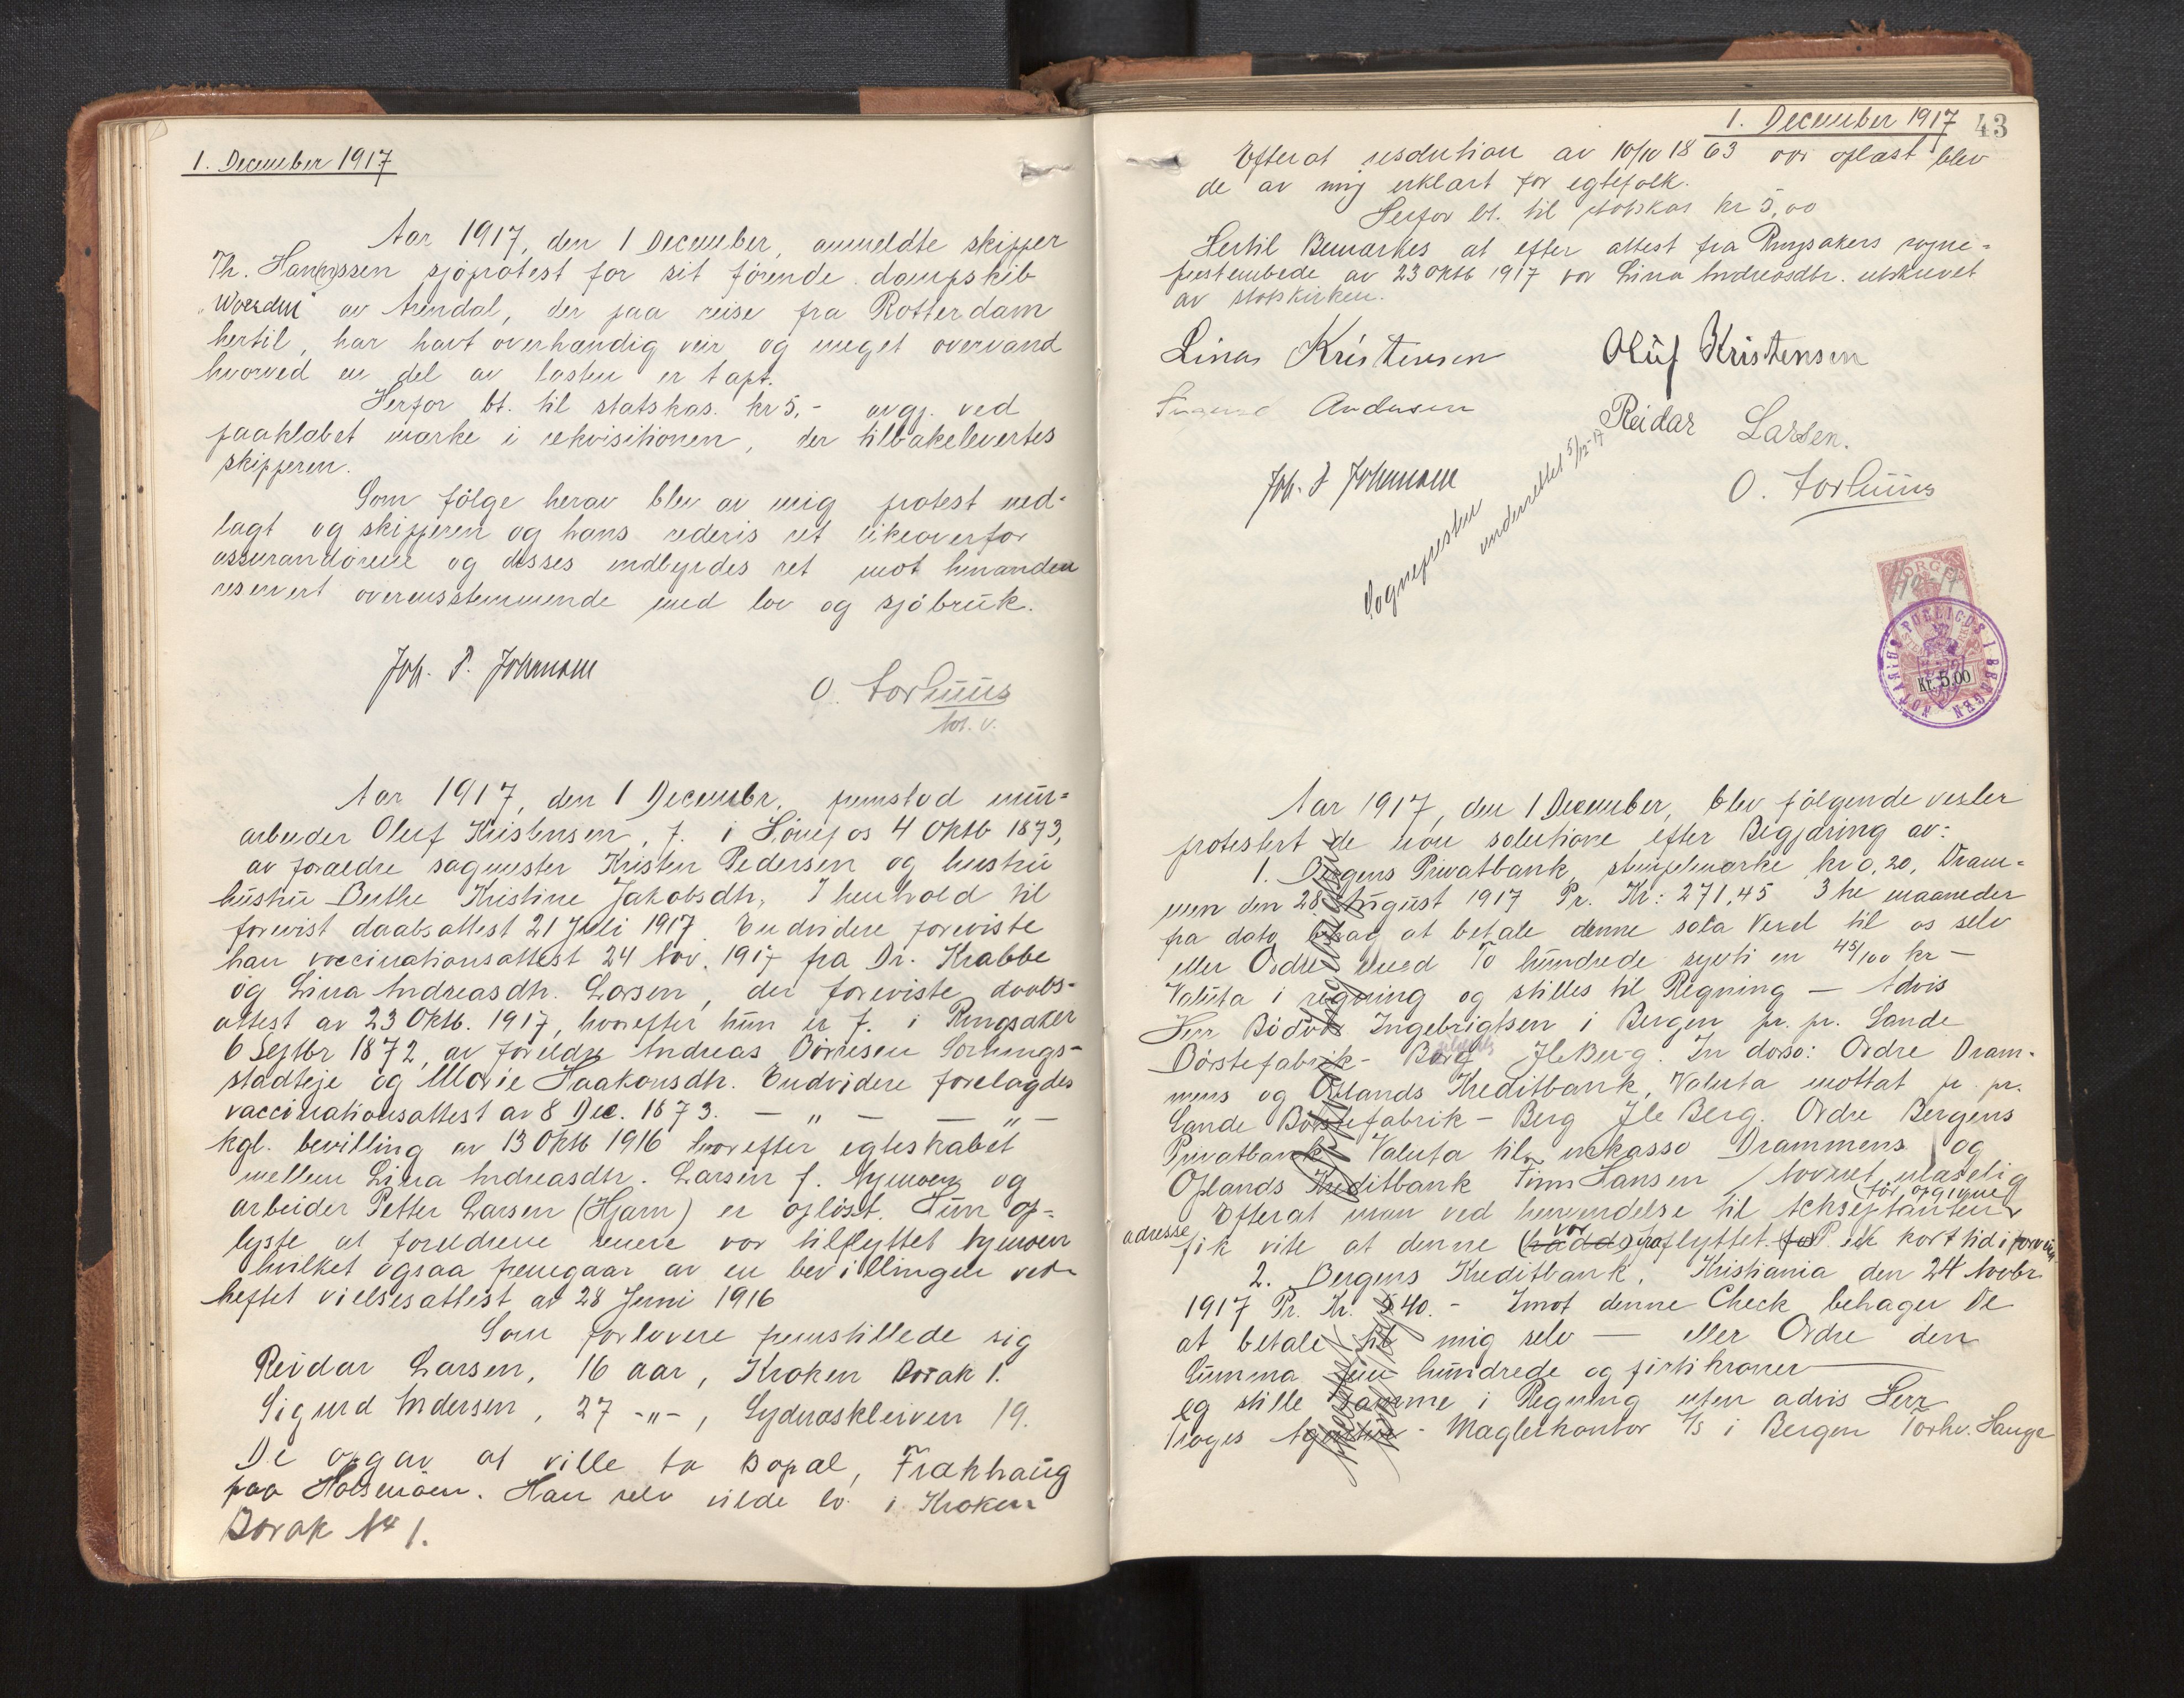 1. December 1917
Aar 1917, den 1 December, anmeldte skipper
Th. Hanssen sjøprotest for sit førende dampskib
av Arendal, der paa reise fra Rotterdam
hertil, har havt overhændig veir og meget overvand
hvorved en del av lasten er tapt.
Herfor bt. til statskas. kr 5,- avgj. ved
paaklæbet mærke i rekvisitionen, der tilbakelevertes
skipperen.
Som følge herav blev av mig protest ned-
lagt og skipperen og hans rederis ret likeoverfor
assurandørene og disses indbyrdes ret mot hinanden
reservert overensstemmende med lov og sjøbruk.
Joh. P. Johannesen
O. Aarhuus
Aar 1917, den 1 Decembr. fremstod mur-
arbeider Oluf Kristensen, f. i Hönefos 4 Oktb 1873,
av foraeldre sagmester Kristen Pedersen og hustru
hustru Berthe Kristine Jakobsdtr, I henhold til
forevist daabsattest 21 Juli 1917. Endvidere foreviste
han vaccinationsattest 24 Nov. 1917 fra Dr. Krabbe
og Lina Andreasdtr. Larsen, der foreviste daabs-
attest av 23 Oktb. 1917, hvorefter hun er f. i Ringsaker
6 Septbr 1872, av foreldre Andreas Börresen
og Marie Haakonsdtr. Endvidere forelagdes
vaccinationsattest av 8 Dec. 1873. — " — — " —
kgl. bevilling av 13 Oktb 1916 hvorefter egteskabet
mellem Lina Andreasdtr. Larsen f. Nymoen og
arbeider Petter Larsen (Hjarn) er opløst. Hun op-
lyste at forældrene senere var tilflyttet Nymoen
hvilket ogsaa fremgaar av en bevillingen ved-
heftet vielsesattest av 28 Juni 1916
Som forlovere fremstillede sig
Reidar Larsen, 16 aar, Kroken Barak 1.
Sigurd Andersen, 27 -"-, Sydnæskleiven 19.
De opgav at ville ta bopæl, Frakhaug
paa Holsenöen. Han selv vilde bo i Kroken
Barak No 1.
1. December 1917 43
Efterat resolution av 10/10 1863 var oplæst blev
de av mig erklært for egtefolk.
Herfor bt. til statskas kr 5,00
Hertil Bemærkes at efter attest fra Ringsakers sogne-
prestembede av 23 Oktb 1917 var Lina Andreasdtr. utskrevet
av statskirken.
Lina Kristensen Oluf Kristensen
Andersen Reidar Larsen.
Joh. P Johannesen O. Aarhuus
Sognepresten
underrettet 5/12-17
NORGE
NOTARIUS PUBLICUS I BERGEN
Kr. 5.00
Aar 1917, den 1 December, blev følgende vexler
protestert de non solutione efter Begjæring av:
1. Bergens Privatbank, stempelmærke kr 0,20, Dram-
men den 28 August 1917 Pr. Kr: 271,45 3 tre maaneder
fra dato behag at betale denne sola Vexel til os selv
eller Ordre med To hundrede sytti en 45/100 kr —
Valuta i regning og stilles til Regning — Advis
Herr Ingebrigtsen i Bergen pr. pr. Sande
Börstefabrik - Berg Ile Berg. In dorso: Ordre Dram-
mens og Oplands Kreditbank, Valuta mottat pr. pr.
Sande Børstefabrik - Berg Ile Berg. Ordre Bergens
Privatbank Valuta til inkasso Drammens og
Oplands Kreditbank Finn Hansen / Navnet ulæselig
Efterat man ved henvendelse til Akseptanten
adresse fik vite at denne var fraflyttet for kort tid i forveien
2. Bergens Kreditbank. Kristiania den 24 Novbr.
1917 Pr. Kr. 540.- Imot denne Check behager De
at betale til mig selv — eller Ordre den
Summa fem hundrede og firti kroner
og stille samme i Regning uten advis Herr
Agentur - Maglerkontor A/S i Bergen Torhv. Hauge